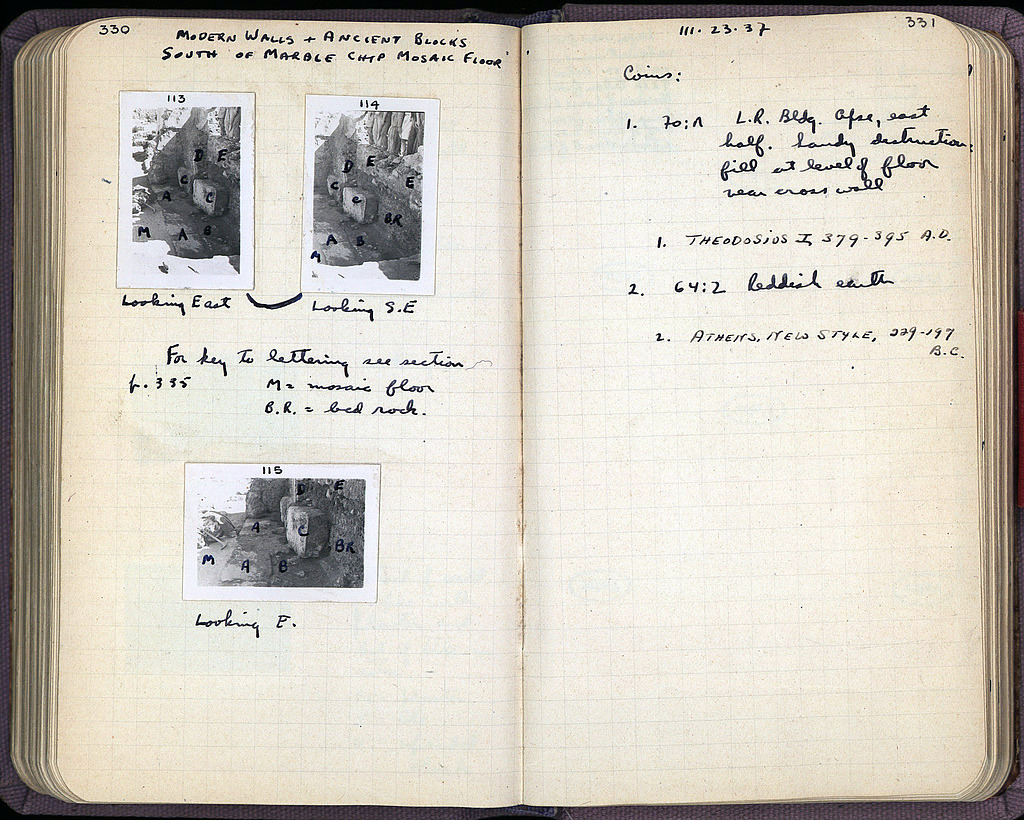 330
MODERN WALLS + ANCIENT BLOCKS
SOUTH OF MARBLE CHIP MOSAIC FLOOR
113
D E
C
A
C
M A B
114
D E
C E
C
BR
A B
M
Looking East
Looking S.E
For key to lettering see section
p. 335 M = mosaic floor
B.R. = bed rock.
115
D E
A C
BR
M A B
Looking E.
331
III. 23. 37
Coins:
1. 70:Λ L.R. Bldg. Apse, east
half. Sandy destruction
fill at level of floor
near cross wall
1. THEODOSIUS I, 379-395 A.D.
2. 64:Z Reddish earth
2. ATHENS, NEW STYLE, 229-197
B.C.